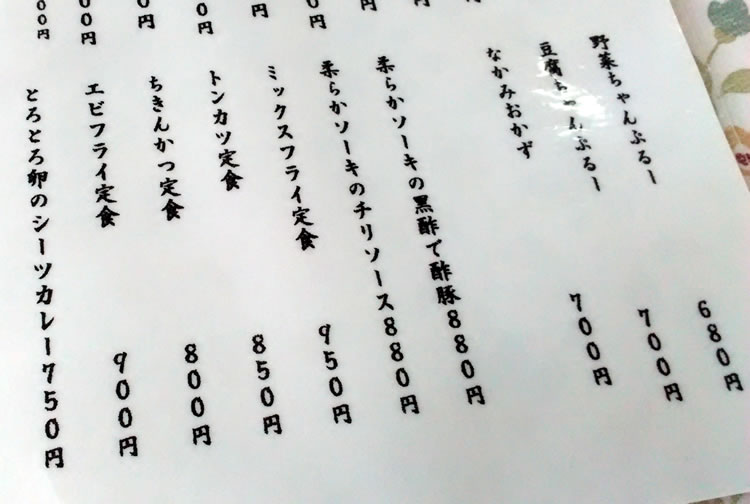 円
円
円
円
0円
0円
00円
00円
野菜ちゃんぷるー 680円
豆腐ちゃんぷるー 700円
なかみおかず 700円
柔らかソーキの黒酢で酢豚880円
柔らかソーキのチリソース880円
ミックスフライ定食 950円
トンカツ定食 850円
ちきんかつ定食 800円
エビフライ定食 900円
とろとろ卵のシーツカレー750円